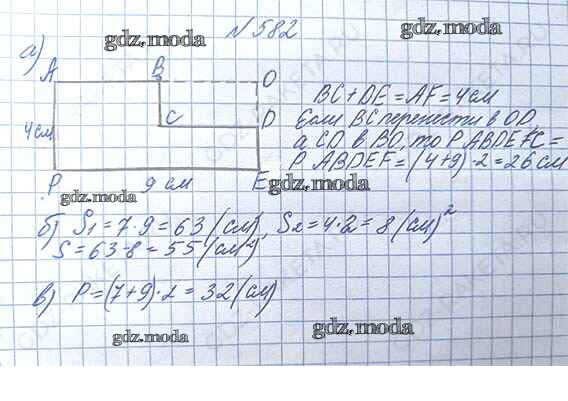 gdz.moda
№582
а)
A B O
BC+DE=AF=4см
gdz.moda
C D
Если BC перенести в OD,
4см
а CD в BO, то P ABDEFC=
P ABDEF=(4+9)·2=26см
P 9 см E
gdz.moda
gdz.moda
б) S₁=7·9=63(см), S₂=4·2=8(см)²
S=63-8=55(см²)
в) P=(7+9)·2=32(см)
gdz.moda
gdz.moda